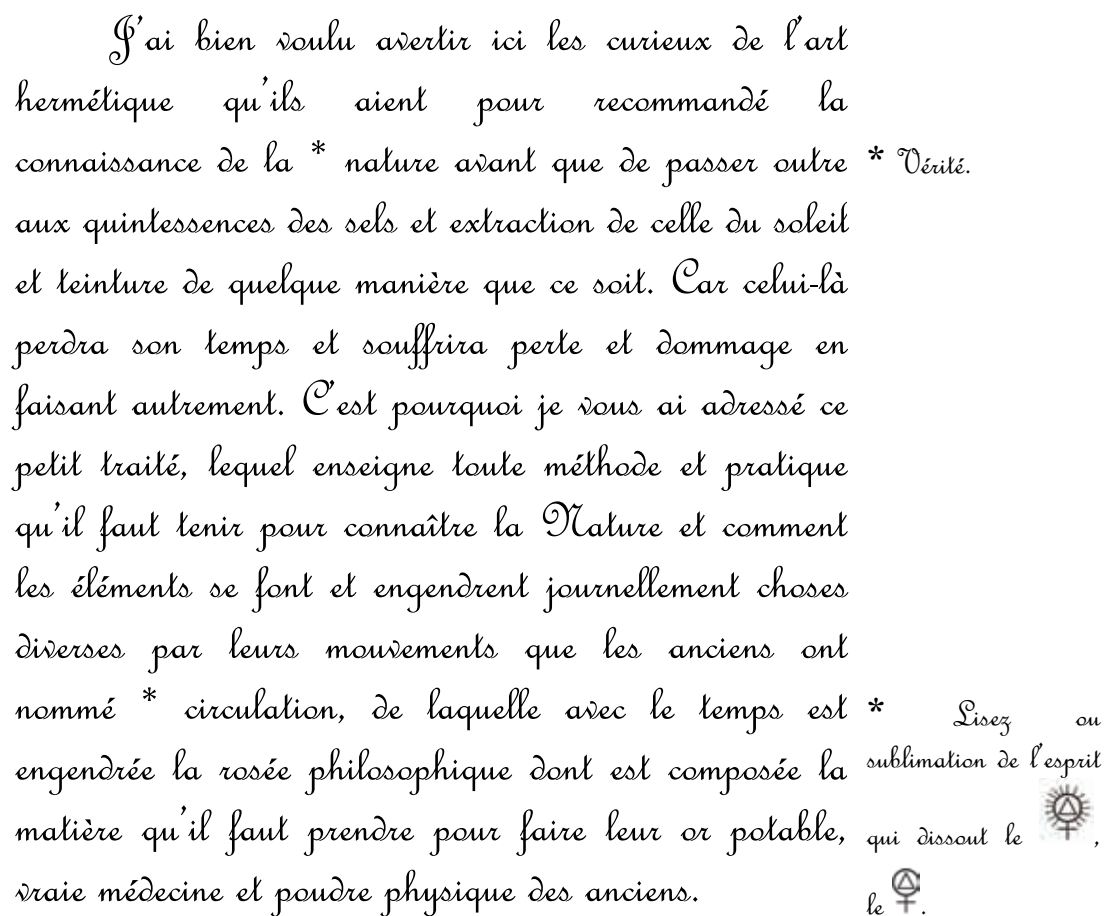 J'ai bien voulu avertir ici les curieux de l'art
hermétique qu'ils aient pour recommandé la
connaissance de la * nature avant que de passer outre
* Vérité.
aux quintessences des sels et extraction de celle du soleil
et teinture de quelque manière que ce soit. Car celui-là
perdra son temps et souffrira perte et dommage en
faisant autrement. C'est pourquoi je vous ai adressé ce
petit traité, lequel enseigne toute méthode et pratique
qu'il faut tenir pour connaître la Nature et comment
les éléments se font et engendrent journellement choses
diverses par leurs mouvements que les anciens ont
nommé * circulation, de laquelle avec le temps est
engendrée la rosée philosophique dont est composée la
matière qu'il faut prendre pour faire leur or potable,
vraie médecine et poudre physique des anciens.
* Lisez ou
sublimation de l'esprit
qui dissout le ,
le .